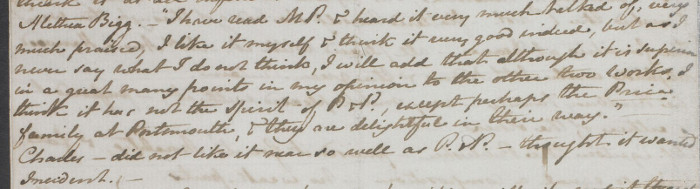 think it as
Alethea Bigg. – "I have read MP. & heard it very much talked of, very
much praised, I like it myself & think it very good indeed, but as I
never say what I do not think, I will add that although it is superior
in a great many points in my opinion to the other two Works, I
think it has not the Spirit of P & P., except perhaps the Price
family at Portsmouth, & they are delightful in their way."
Charles – did not like it near so well as P. & P. – thought it wanted
Incident. –